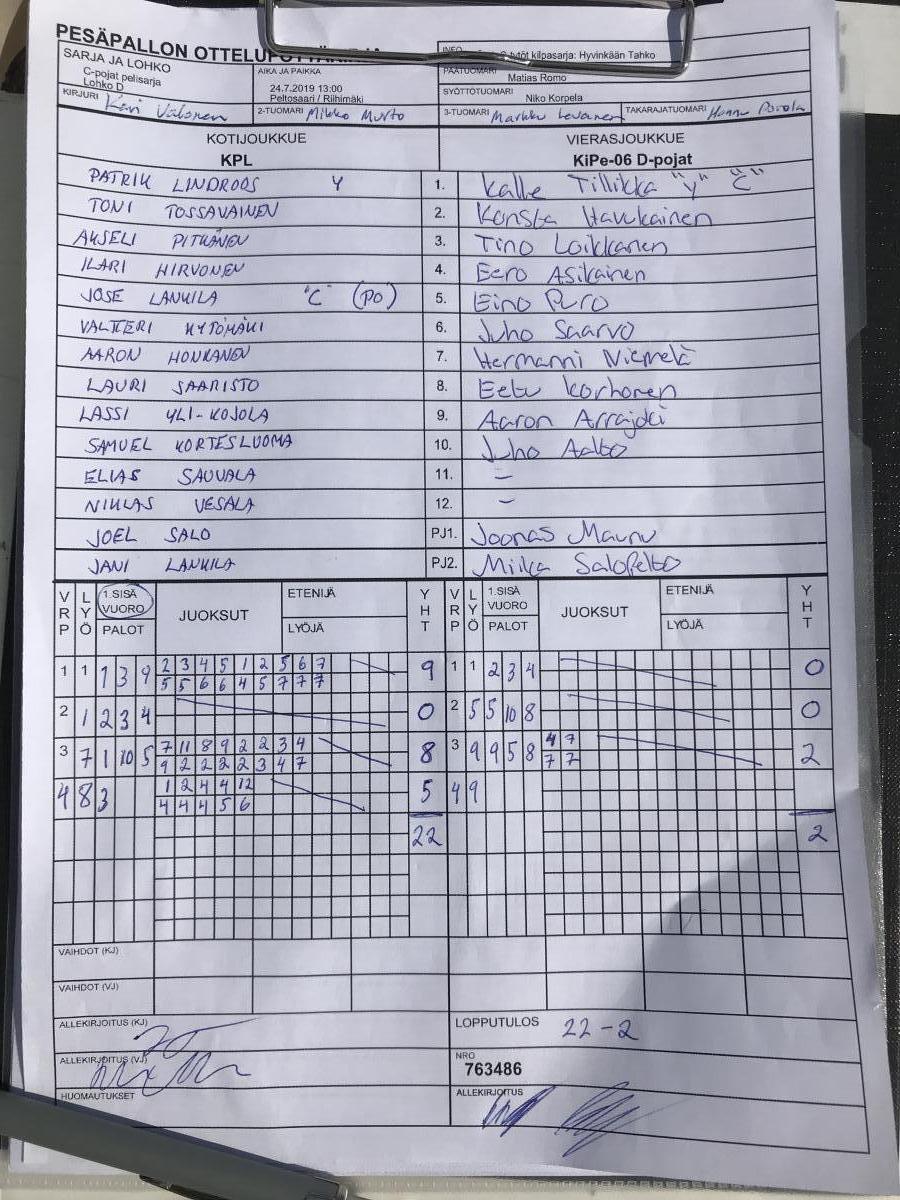 PESÄPALLON
INFO tytöt kilpasarja: Hyvinkään Tahko
SARJA JA LOHKO
C-pojat pelisarja
Lohko D
AIKA JA PAIKKA
24.7.2019 13:00
Peltosaari / Riihimäki
PÄÄTUOMARI
Matias Romo
SYÖTTÖTUOMARI
Niko Korpela
KIRJURI Valonen
2-TUOMARI Mikko Murto
3-TUOMARI Markku Levanen
TAKARAJATUOMARI Hannu
KOTIJOUKKUE VIERASJOUKKUE
KPL KiPe-06 D-pojat
PATRIK LINDROOS Y 1. Kalle Tillikka "Y" "C"
TONI TOSSAVAINEN 2. Konsta Havukainen
AKSELI PITKÄNEN 3. Tino Loikkanen
ILARI HIRVONEN 4. Eero Asikainen
JOSE LANKILA "C" (PO) 5. Eino Puro
VALTTERI KYTÖMÄKI 6. Juho Saarvo
AARON HONKANEN 7. Hermanni Niemelä
LAURI SAARISTO 8. Eetu Korhonen
LASSI YLI-KOJOLA 9. Aaron Arrajoki
SAMUEL KORTESLUOMA 10. Juho Aalto
ELIAS SAUVALA 11. –
NIKLAS VESALA 12. –
JOEL SALO PJ1. Joonas Maunu
JANI LANKILA PJ2. Miika Salopelto
VRP LYÖ 1.SISÄVUORO PALOT JUOKSUT ETENIJÄ LYÖJÄ YHT VRP LYÖ 1.SISÄVUORO PALOT JUOKSUT ETENIJÄ LYÖJÄ YHT
1 1 1 3 9 2 3 4 5 1 2 5 6 7 9 1 1 2 3 4 0
5 5 6 6 4 5 7 7 7
2 1 2 3 4 0 2 5 5 10 8 0
3 7 1 10 5 7 11 8 9 2 2 3 4 8 3 9 9 5 8 4 7 2
9 2 2 2 2 3 4 7 7 7
4 8 3 1 2 4 4 12 5 4 9
4 4 4 5 6
22 2
VAIHDOT (KJ)
VAIHDOT (VJ)
ALLEKIRJOITUS (KJ)
LOPPUTULOS 22-2
ALLEKIRJOITUS (VJ)
NRO
763486
HUOMAUTUKSET
ALLEKIRJOITUS